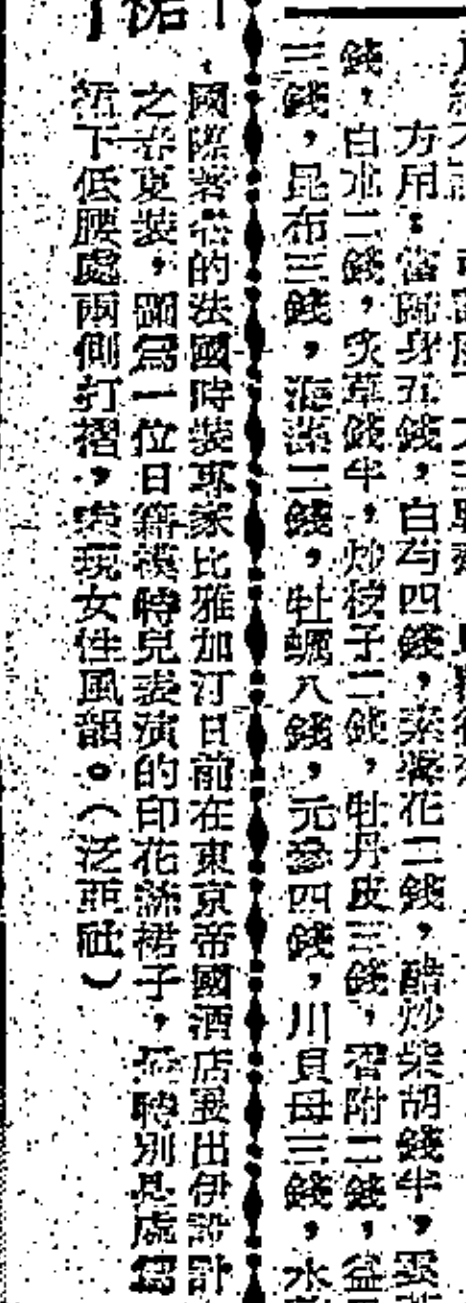 方用：當歸身五錢，白芍四錢，素馨花二錢，醋炒柴胡錢半，雲
錢，白朮二錢，炙草錢半，炒枝子二錢，牡丹皮三錢，香附二錢，益
三錢，昆布三錢，海藻二錢，牡蠣八錢，元參四錢，川貝母三錢，水
國際著名的法國時裝專家比雅加汀日前在東京帝國酒店展出伊設計
之春夏裝，圖為一位日籍模特兒表演的印花絲裙子，最特別之處為
紐下低腰處兩側打褶，表現女性風韻。（泛亞社）
裙